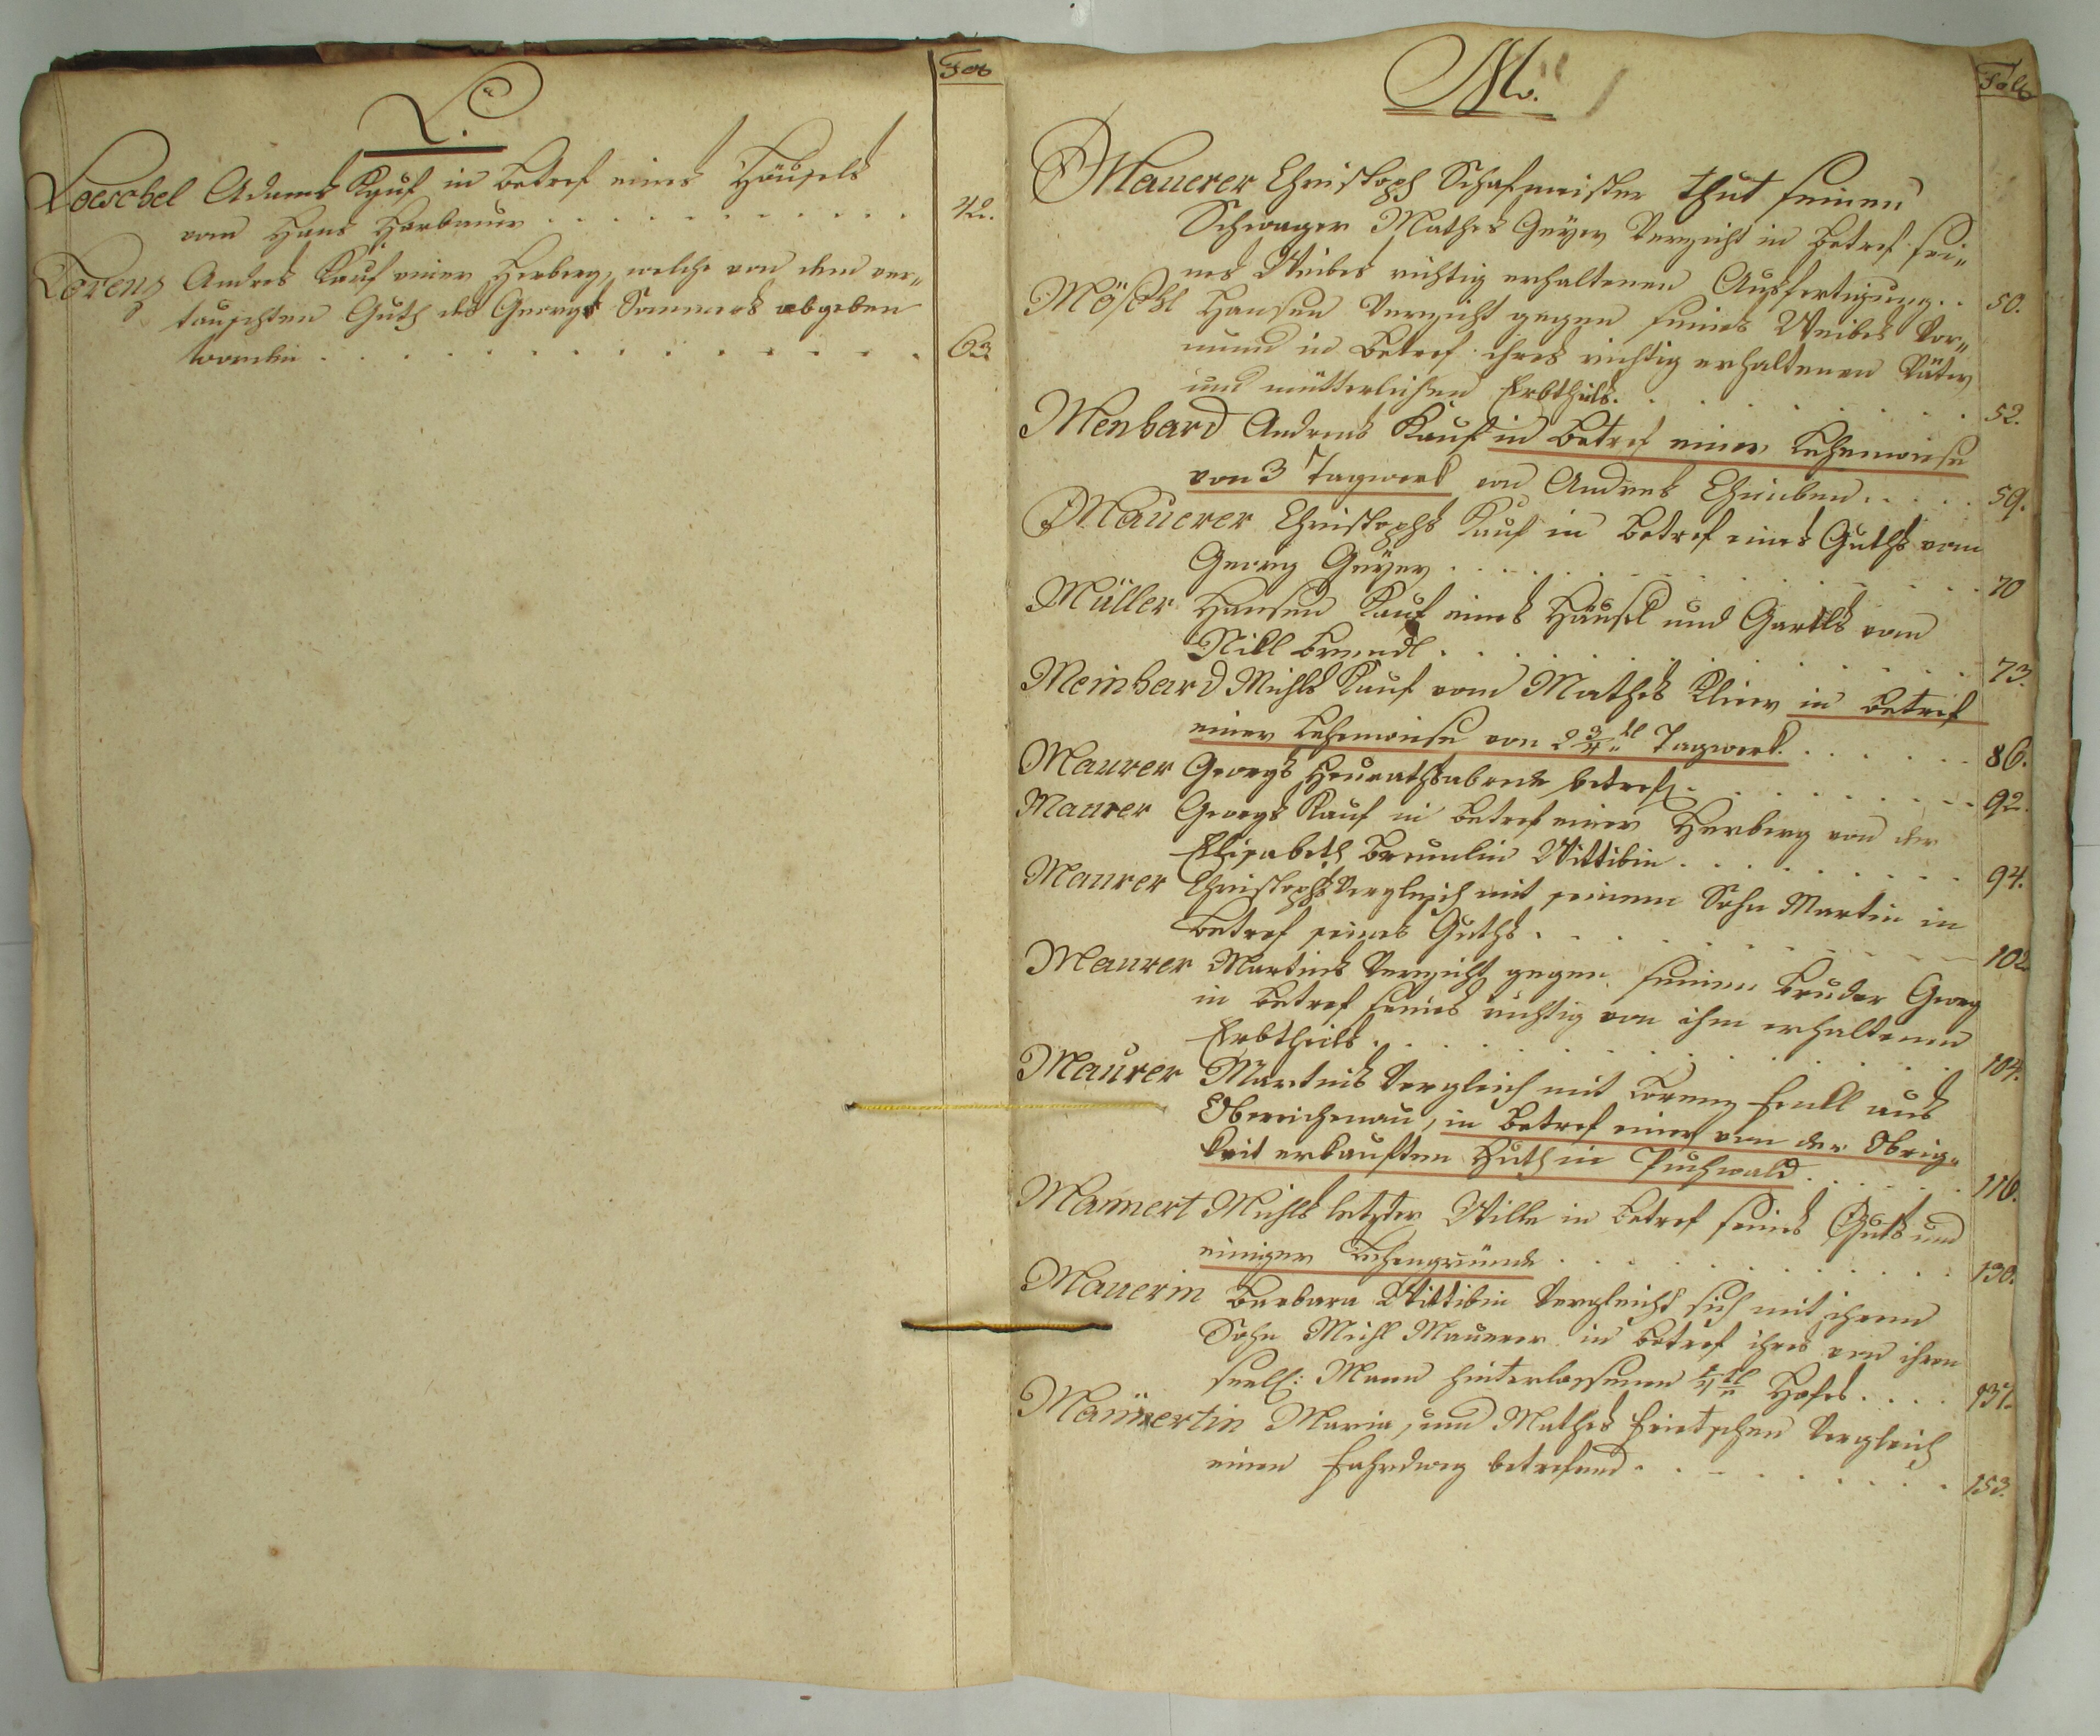 Fol
L.
Loeschel Adams Kauf in Betref eines Häusels
vom Hans Harbauer . . . . . . . . . . . 42.
Lorenz Andres Kauf einer Herberg, welche von dem ver-
tauschten Guth des Georgs Sommers abgeben
worden . . . . . . . . . . . . . . 63
M.
Folio
Mauerer Christoph Schafmeister thut seinen
Schwager Mathes Geÿer Verzicht in Betref sei-
nes Weibes richtig erhaltenen Ausfertigung . . 50.
Möschl Hansen Verzicht gegen seines Weibes Vor-
mund in Betref ihres richtig erhaltenen Väter
und mütterlichen Erbtheils . . . . . . . . 52.
Menhard Andreas Kauf in Betref einer Lehenwiese
von 3 Tagwerk von Andres . . . . . 59.
Mauerer Christophs Kauf in Betref eines Guths vom
Georg Geÿer . . . . . . . . . . . . . . 70
Müller Hansen Kauf eines Häusel und Gartls vom
. . . . . . . . . . . . . . 73.
Meinhard Michls Kauf vom Mathes in Betref
einer Lehenwiese von 2 3/4tl Tagwerk . . . . . . 86.
Maurer Georgs Heurathsabrede betref . . . . . . . . . 92.
Maurer Georgs Kauf in Betref einer Herberg von der
Elisabeth Wittibin . . . . . . . . . 94.
Maurer Christophs Vergleich mit seinem Sohn Martin in
Betref seines Guths . . . . . . . . . . . . 102
Maurer Martins Verzicht gegen seinen Bruder Georg
in Betref seines richtig von ihm erhaltenen
Erbtheils . . . . . . . . . . . . . 104.
Maurer Martins Vergleich mit Lorenz aus
in Betref einer von der Obrig-
keit erkauften Huth in Puchwald . . . . . . 116.
Mannert Michls letzter Wille in Betref seines Guts und
einiger Lehengründe . . . . . . . . . . . . 130.
Mauerin Barbara Wittibin Vergleicht sich mit ihrem
Sohn Michl Mauerer in Betref ihres von ihren
seel: Mann hinterlassenen 1/4tl Hofes . . . . 137.
Mannertin Maria, und Mathes Fritschen Vergleich
einen Fahrdweg betrefend . . . . . . . . . 153.